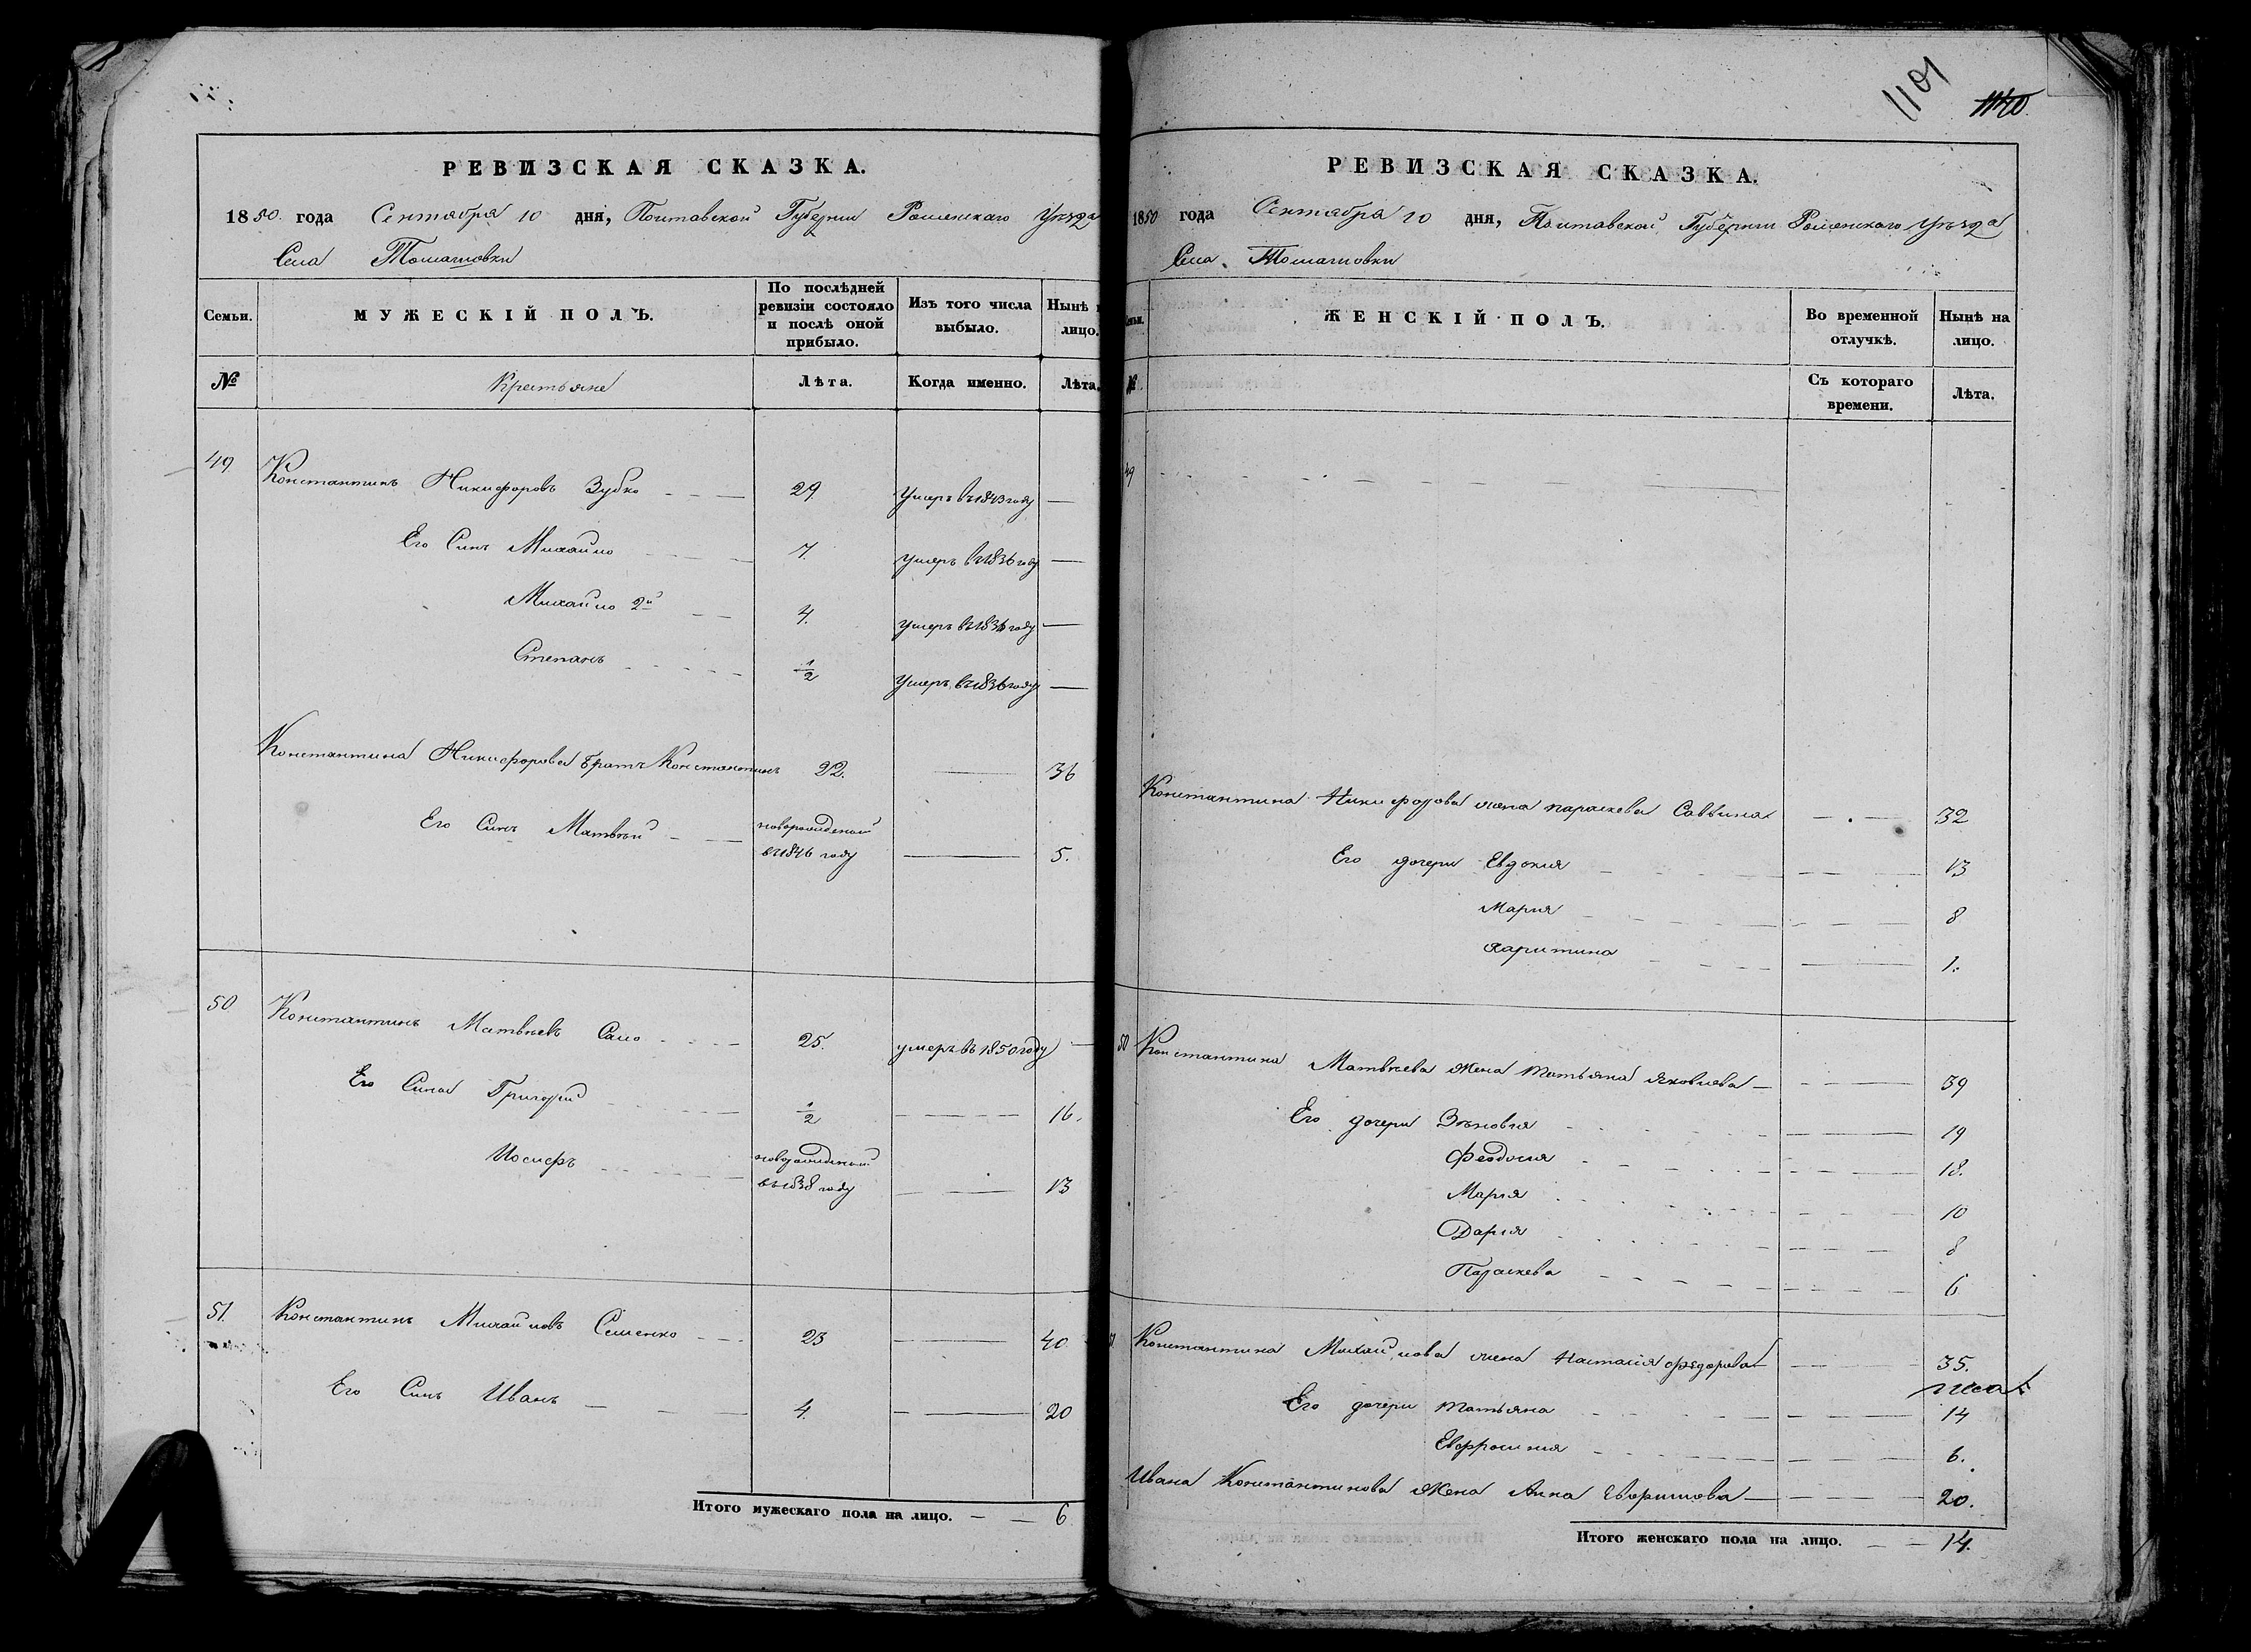 РЕВИЗСКАЯ СКАЗКА.
1850. года Сентября 10 дня, Полтавской Губернии Роменскаго Уѣзда
Села Томашовки
Семьи. МУЖЕСКІЙ ПОЛЪ. По послѣдней ревизіи состояло и послѣ оной прибыло. Изъ того числа выбыло. Нынѣ лицо.
№ Крестьяне Лѣта. Когда именно. Лѣта.
49 Константинъ Никифоровъ Зубко 29. Умеръ въ 1843 году
Его Синъ Михайло 7. умеръ въ 1836 году
Михайло 2й 4. умеръ въ 1836 году
Степанъ 1/2 Умеръ въ 1836 году
Константина Никифорова братъ Константинъ 22. 36
Его Синъ Матвѣй новорожденый
въ 1846 году 5.
50 Константинъ Матвѣевъ Сало 25. умеръ въ 1850 году
Его Сина Григорий 1/2 16.
Иосифъ новорожденый
въ 1838 году 13
51. Константинъ Михайловъ Семенко 23 40
Его Синъ Иванъ 4. 20
Итого мужескаго пола на лицо. 6
1101 1140
РЕВИЗСКАЯ СКАЗКА.
1850 года Сентября 10 дня, Полтавской Губернии Роменскаго Уѣзда
Села Томашовки
ЖЕНСКІЙ ПОЛЪ. Во временной отлучкѣ. Нынѣ на лицо.
№ Съ котораго времени. Лѣта.
49
Константина Никифорова жена параскева Саввина 32
Его дочери Евдокия 13
Мария 8
Харитина 1.
50 Константина Матвѣева жена татьяна яковлева 39
Его дочери Зѣновия 19
Феодосия 18.
Мария 10
Дария 8
Параскева 6
51 Константина Михайлова жена Настасия федорова 35.
Его дочери татьяна 14
Евфросиния 6.
Ивана Константинова жена Анна 20.
Итого женскаго пола на лицо. 14.